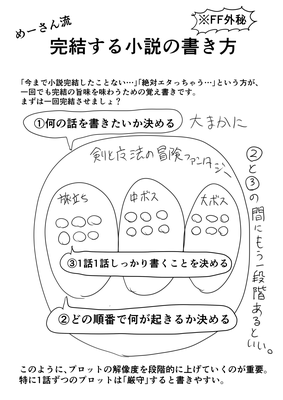 めーさん流
※FF外秘
完結する小説の書き方
「今まで小説完結したことない…」「絶対エタっちゃう…」という方が、
一回でも完結の旨味を味わうための覚え書きです。
まずは一回完結させましょ？
①何の話を書きたいか決める
大まかに
剣と魔法の冒険ファンタジー
旅立ち
中ボス
大ボス
③1話1話しっかり書くことを決める
②どの順番で何が起きるか決める
②と③の間にもう一段階あるといい。
このように、プロットの解像度を段階的に上げていくのが重要。
特に1話ずつのプロットは「厳守」すると書きやすい。